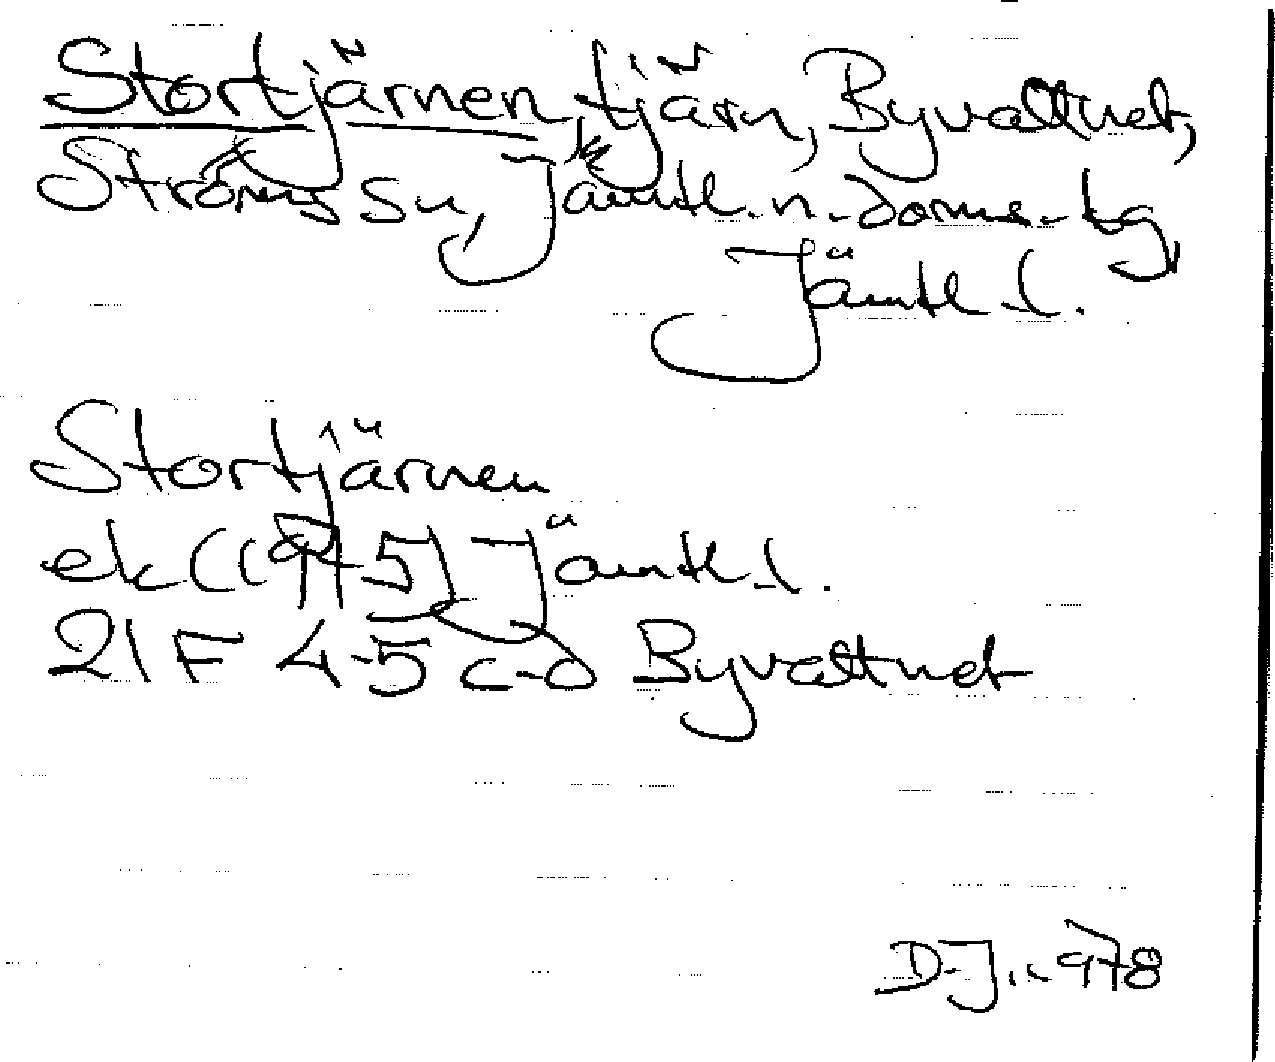 Stortjärnen, tjärn, Byvattnet,
Ströms sn, Jämtl. n. doms. tg
Jämtl. l.
Stortjärnen
ek (1975) Jämtl. l.
21F 4-5 c-d Byvattnet
D.J. 1978